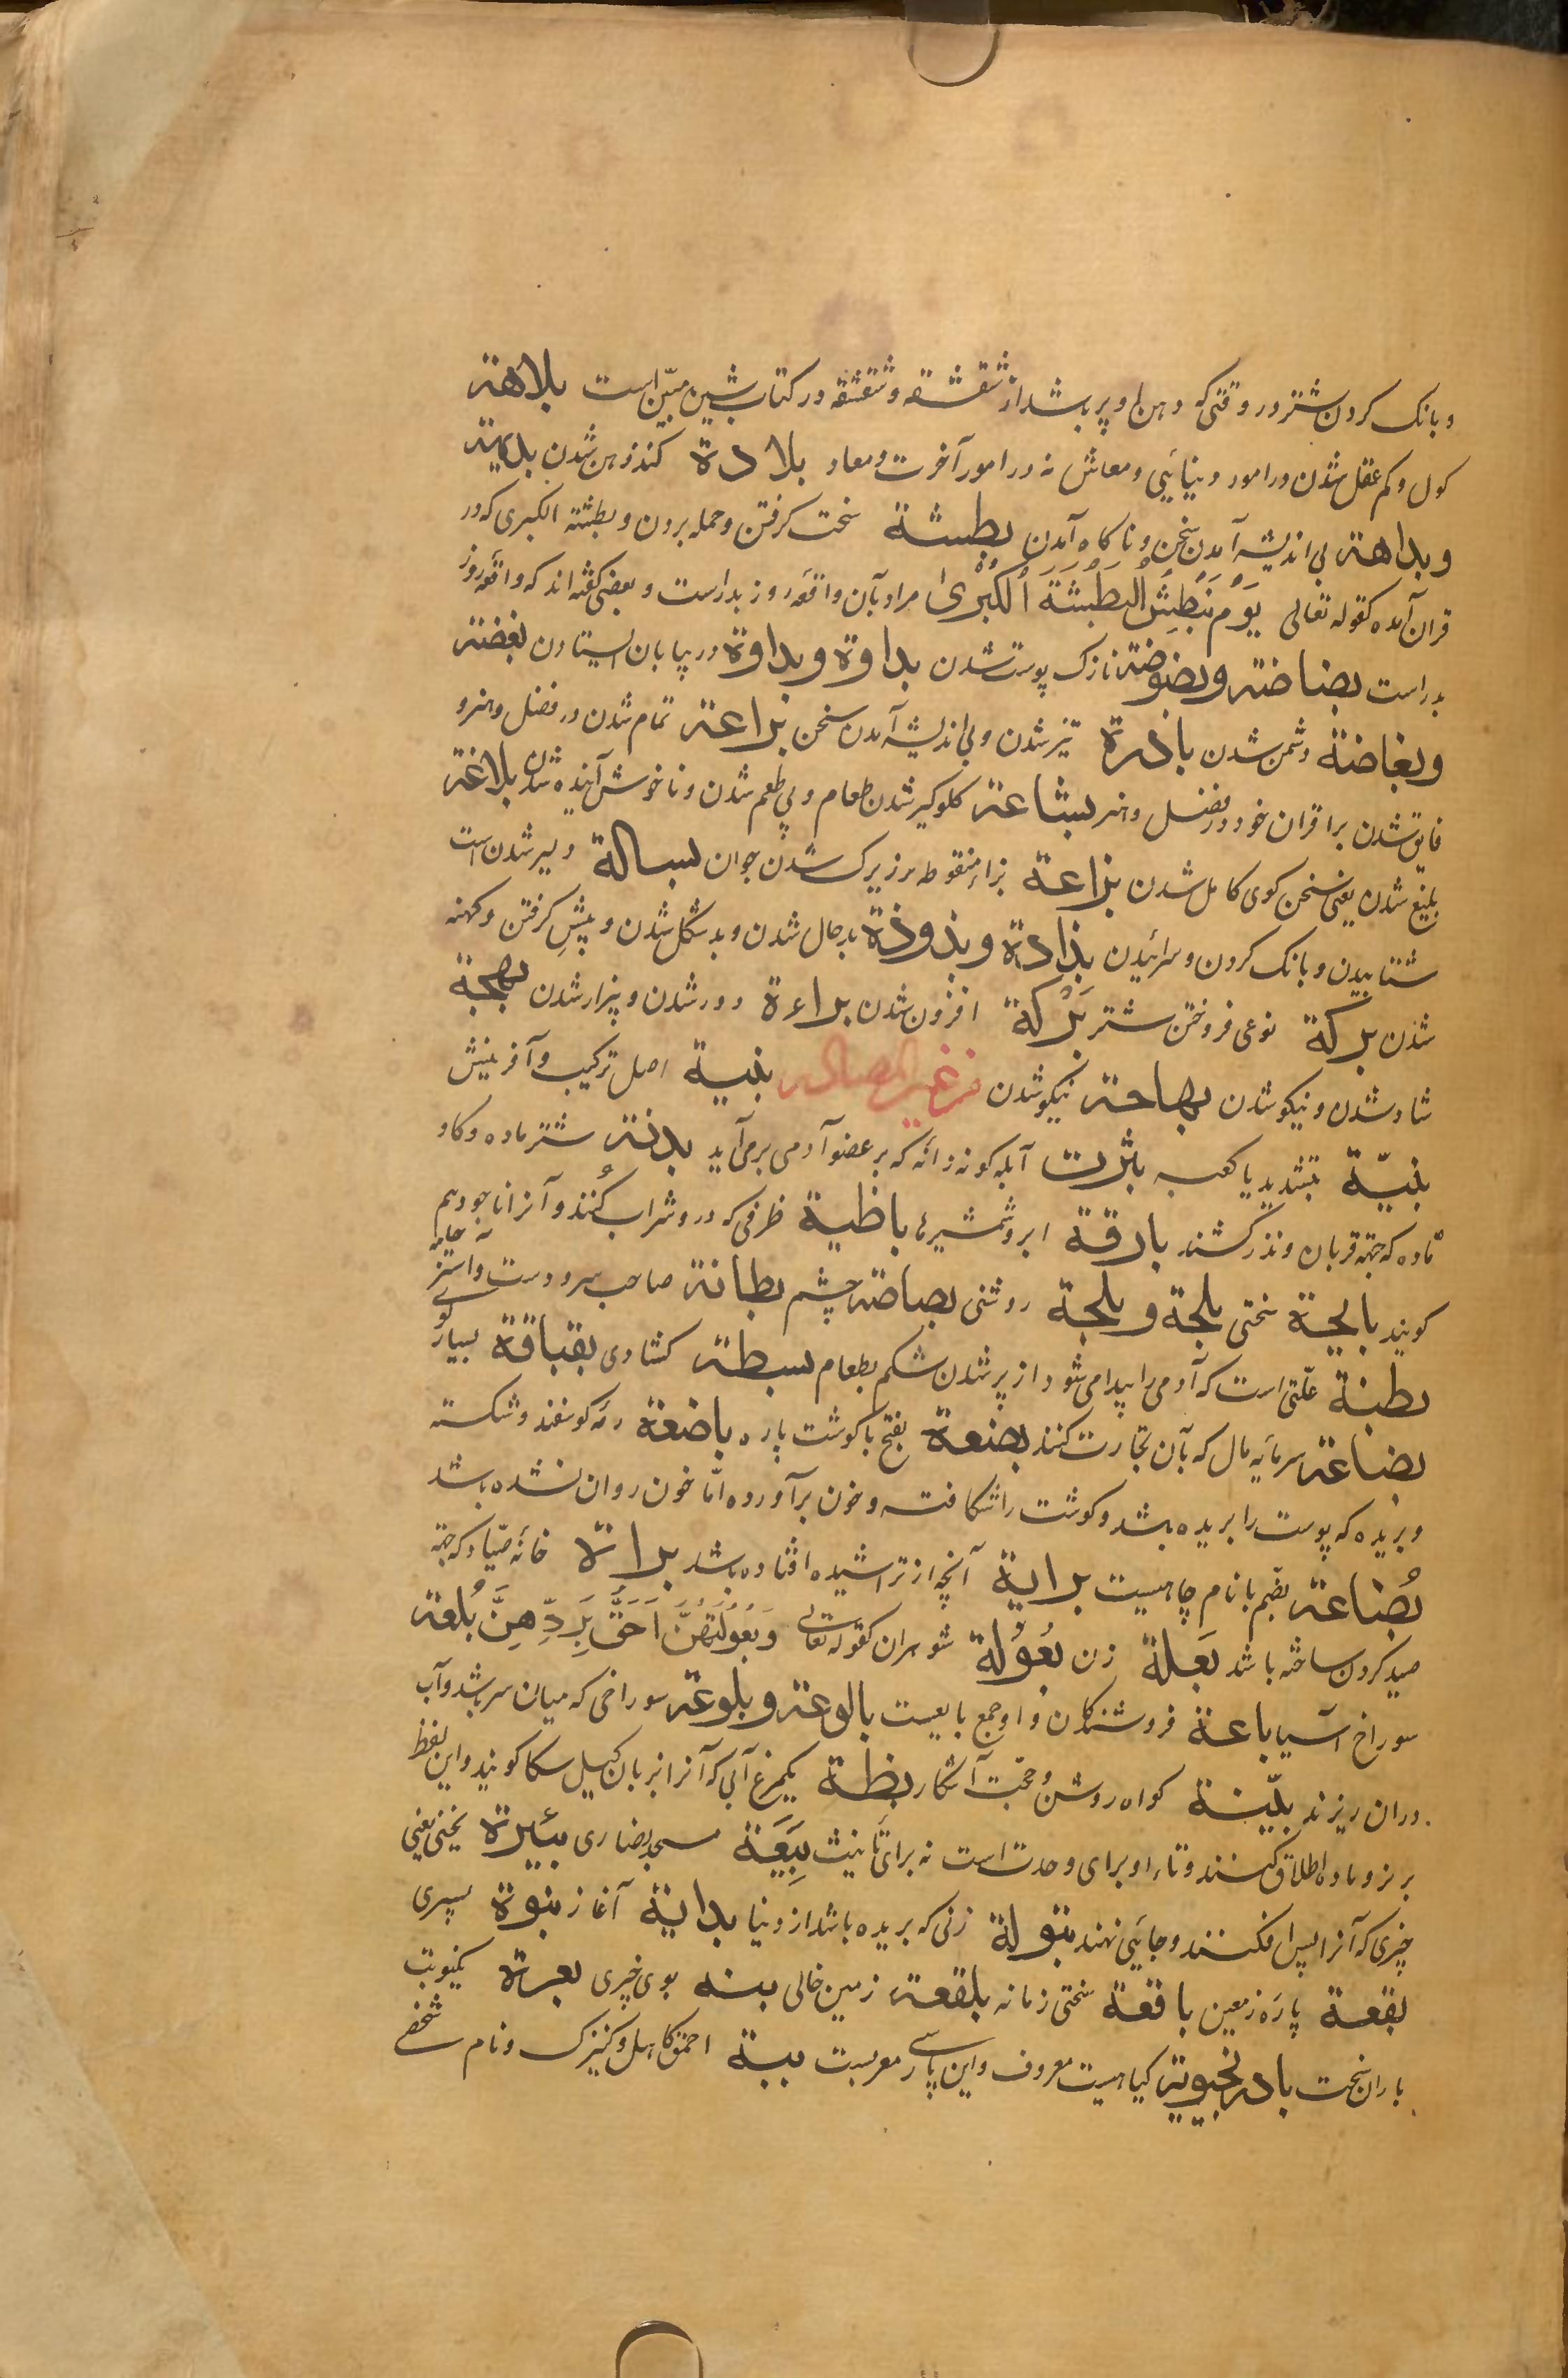 و بانک کردن شتر در وقتی که دهن او پر باشد از شقشقه و شقشقه در کتاب شین مبیّن است بلاهة
کول و کم عقل شدن در امور دنیائیی و معاش نه در امور آخرت و معاد بلادة کند ذهن شدن بدیهة
و بداهة بی اندیشه آمدن سخن و ناکاه آمدن بطشة سخت کرفتن و حمله بردن و بطشة الکبری که در
قران آمده کقوله تعالی یَوْمَ نَبْطِشُ الْبَطْشَةَ الْکُبْریٰ مراد بآن واقعٔه روز بدر است و بعضی کفته اند که واقعٔه روز
بدر است بضاضة و بضوضة نازک پوست شدن بداوة و بداوة در بیابان ایستادن بغضة
و بغاضة دشمن شدن بادرة تیز شدن و بی اندیشه آمدن سخن براعة تمام شدن در فضل و هنر و
فایق شدن بر اقران خود در فضل و هنر بشاعة کلوکیر شدن طعام و بی طعم شدن و ناخوش آینده شدن بلاغة
بلیغ شدن یعنی سخن کوی کامل شدن بزاعة بزاء منقوطه زیرک شدن جوان بسالة دلیر شدن است
شتابیدن و بانک کردن و سرائیدن بذاذة و بذوذة بد حال شدن و بد شکل شدن و پیش کرفتن و کهنه
شدن برکة نوعی فروختن شتر بَرَکة افزون شدن براءة دور شدن و بیزار شدن بهجة
شاد شدن و نیکو شدن بهاجة نیکو شدن من غیر المصادر بنیة اصل ترکیب و آفرینش
بنیّة بتشدید یا کعبه بثرت آبله کونه دانٔه که بر عضو آدمی برمی آید بدنة شتر ماده و کاو
ماده که جهة قربان و نذر کشند بارقة ابر و شمشیرها باطیة ظرفی که در و شراب کُنند و آنرا ناجود هم
کویند بالجة سختی بلجة و بلجة روشنی بصاصة چشم بطانة صاحب سر و دوست و استر جامه
بطنة علّتی است که آدمی را پیدا می شود از پر شدن شکم بطعام بسطة کشادی بقباقة بسیار کوی
بضاعة سرمایٔه مال که بآن تجارت کنند بضعة بفتح با کوشت پاره باضعة رمٔه کوسفند و شکسته
و بریده که پوست را بریده باشد و کوشت را شکافته و خون برآورده امّا خون روان نشده باشد
بُضاعة بضم با نام چاهیست برایة آنچه از تراشیده افتاده باشد براة خانٔه صیّاد که جهة
صید کردن ساخته باشد بَعلة زن بُعُوْلة شوهران کقوله تعالی وَ بُعُوْلَتُهُنَّ اَحَقُّ بِرَدِّهِنَّ بُلعة
سوراخ آسیا باعة فروشندکان و او جمع بایعست بالوعة و بلوعة سوراخی که میان سر باشد و آب
دران ریزند بیّنة کواه روشن و حجّت آشکار بطة یکمرغ آبی که آنرا بزبان کیل سکا کویند و این لفظ
بر نر و ماده اطلاق کنند و تاء او برای وحدت است نه برای تأنیث بِیَعَة مسجد نصاری بئیرة یخنی یعنی
چیزی که آنرا پس افکنند و جائیی نهند بتولة زنی که بریده باشد از دنیا بدایة آغاز بنوة پسری
بقعة پارٔه زمین باقعة سختی زمانه بلقعة زمین خالی بنة بوی چیزی بعرة یکنوبت
باران سخت بادرنجبویة کیاهیست معروف و این پارسی معربست ببة احمق کاهل و کنیزک و نام شخصی